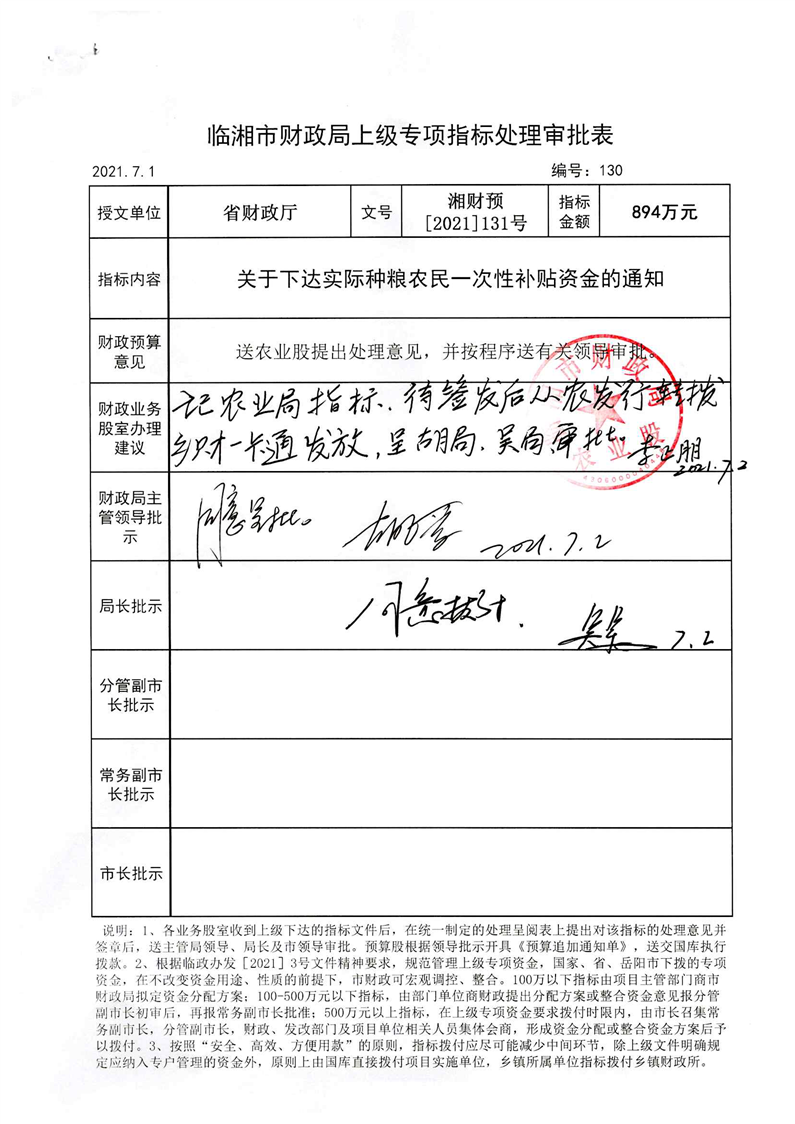 临湘市财政局上级专项指标处理审批表
2021.7.1 编号：130
授文单位 省财政厅 文号 湘财预[2021]131号 指标金额 894万元
指标内容 关于下达实际种粮农民一次性补贴资金的通知
财政预算意见 送农业股提出处理意见，并按程序送有关领导审批。
财政业务股室办理建议
记农业局指标、待签发后从农发行转拨
乡财一卡通发放，呈胡局、吴局审批。
2021.7.2
财政局主管领导批示 同意呈批。 2021.7.2
局长批示 同意拨付. 7.2
分管副市长批示
常务副市长批示
市长批示
市财政局
农业股
说明：1、各业务股室收到上级下达的指标文件后，在统一制定的处理呈阅表上提出对该指标的处理意见并
签章后，送主管局领导、局长及市领导审批。预算股根据领导批示开具《预算追加通知单》，送交国库执行
拨款。2、根据临政办发［2021］3号文件精神要求，规范管理上级专项资金，国家、省、岳阳市下拨的专项
资金，在不改变资金用途、性质的前提下，市财政可宏观调控、整合。100万以下指标由项目主管部门商市
财政局拟定资金分配方案；100-500万元以下指标，由部门单位商财政提出分配方案或整合资金意见报分管
副市长初审后，再报常务副市长批准；500万元以上指标，在上级专项资金要求拨付时限内，由市长召集常
务副市长，分管副市长，财政、发改部门及项目单位相关人员集体会商，形成资金分配或整合资金方案后予
以拨付。3、按照“安全、高效、方便用款”的原则，指标拨付应尽可能减少中间环节，除上级文件明确规
定应纳入专户管理的资金外，原则上由国库直接拨付项目实施单位，乡镇所属单位指标拨付乡镇财政所。